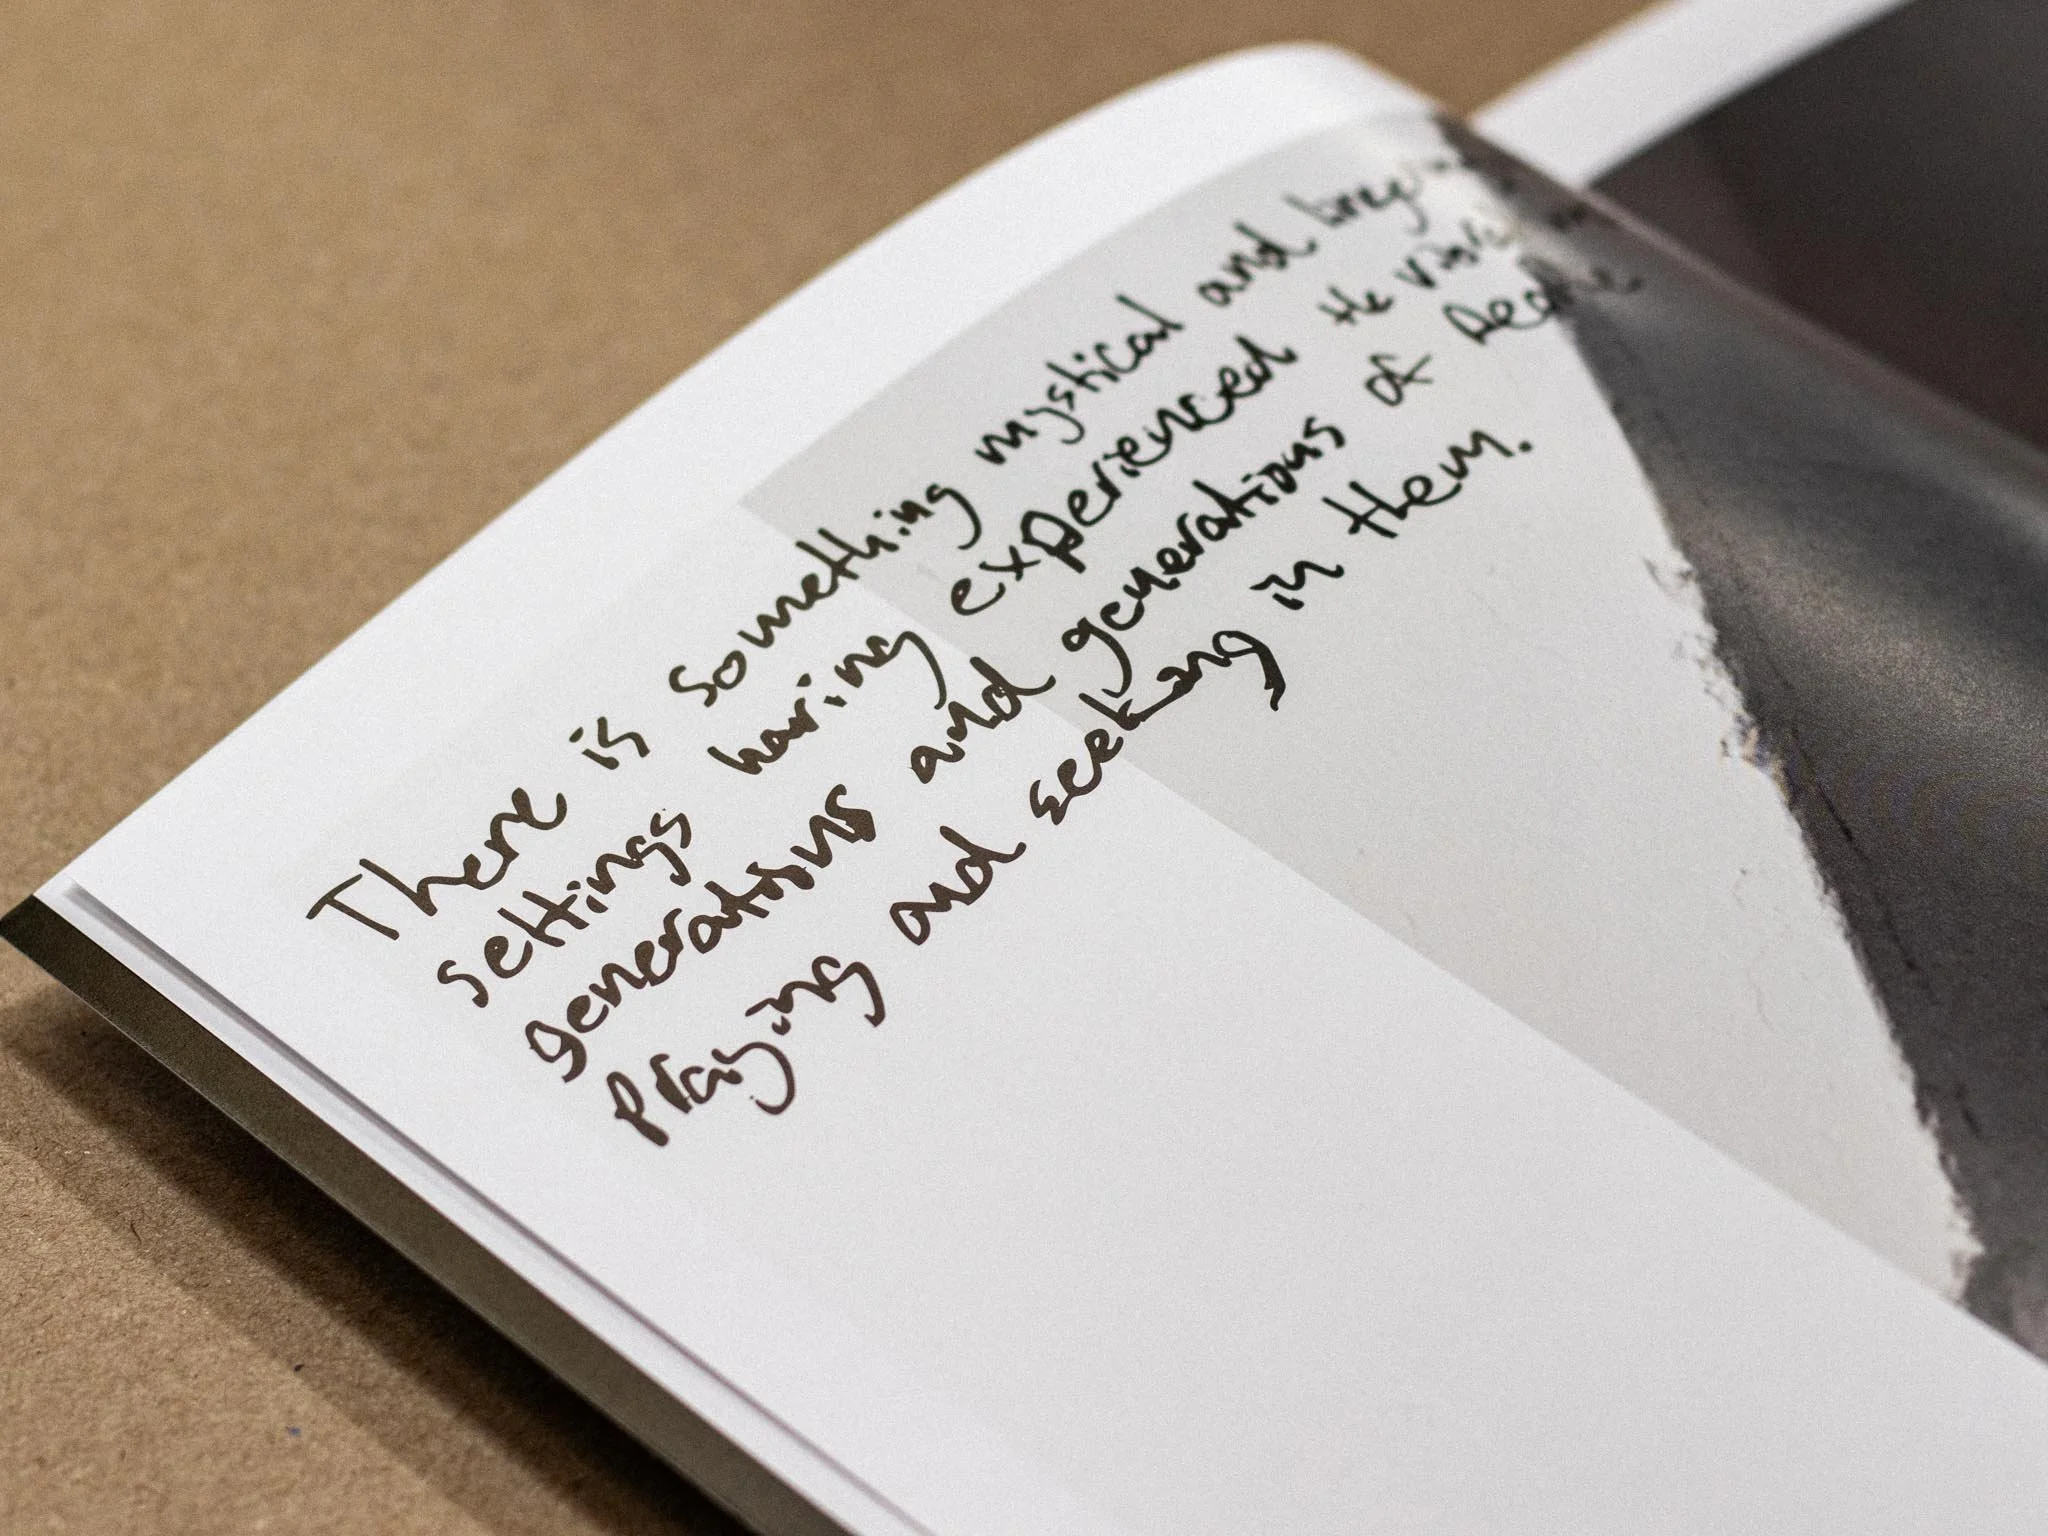 There is something mystical and
settings having experienced the
generations and generations of people
Praying and seeking in them.